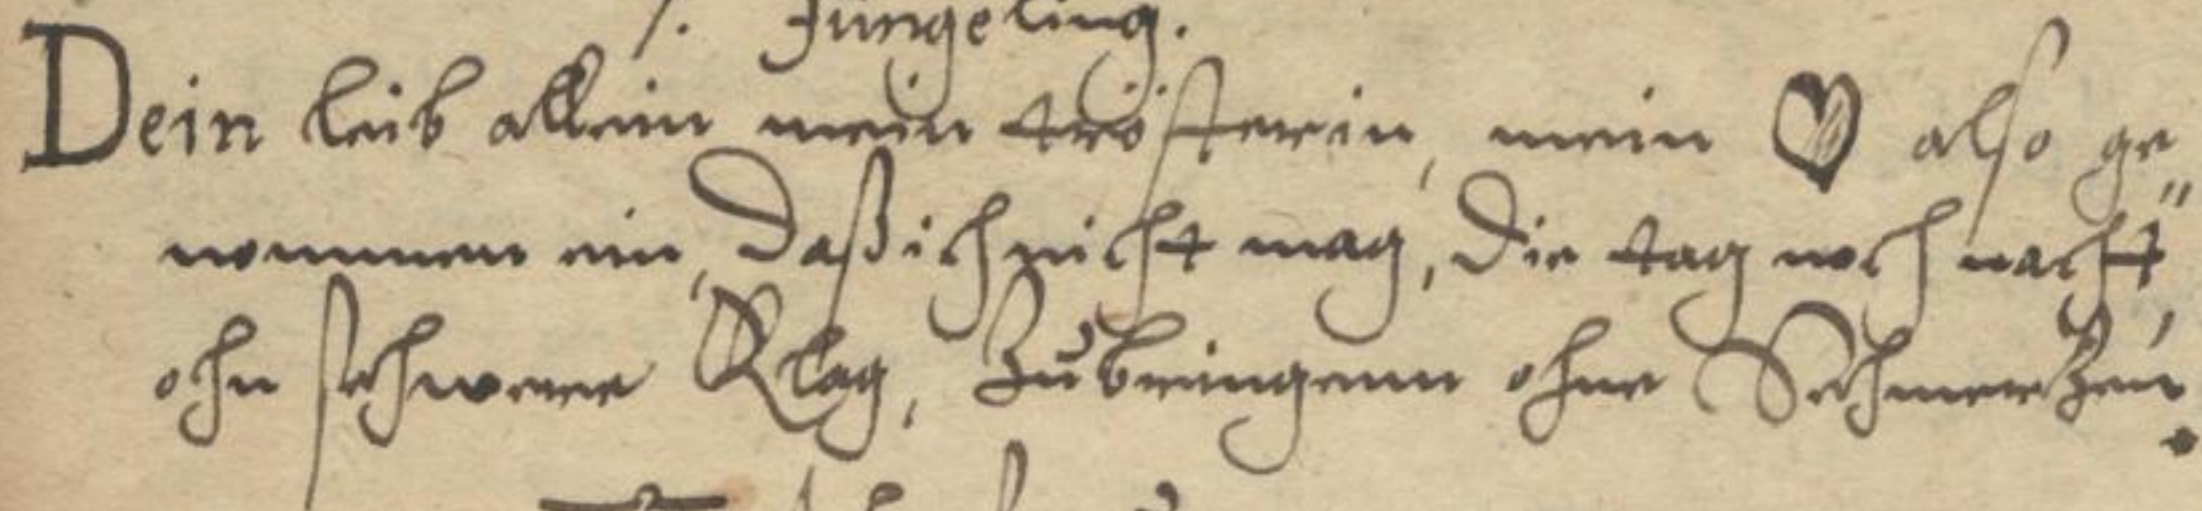 Jüngeling.
Dein leib allein mein trösterin, mein ♥ also ge"
nommen ein, Daß ich nicht mag, Die tag noch nacht,
ohn schwere Klag, Zubringenn ohne Schmertzen.